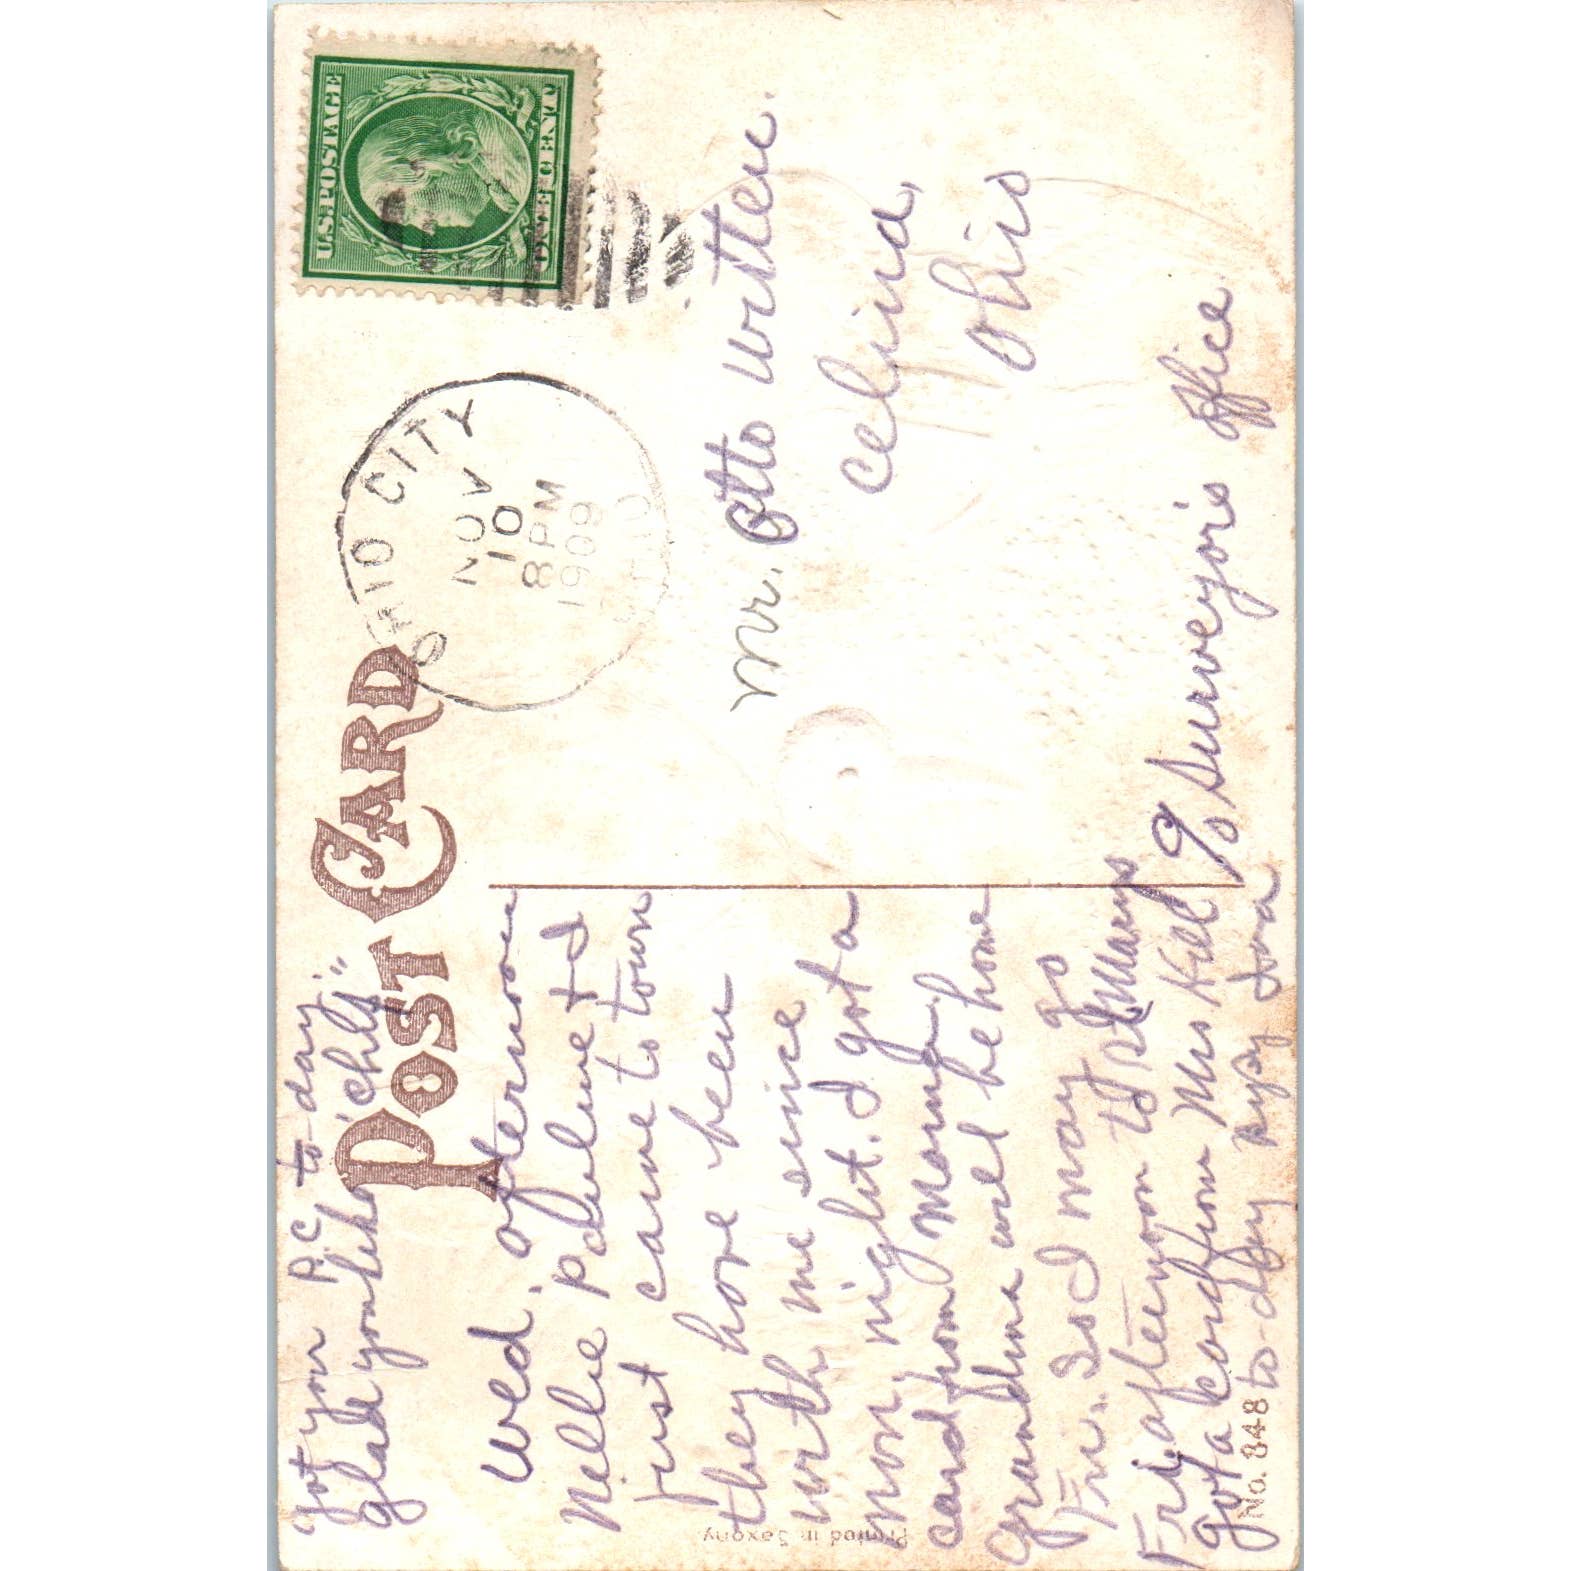 Got your P.C. to-day
Glad you like "chili"
POST CARD
U.S. POSTAGE
ONE CENT
OHIO CITY
NOV
10
8 PM
1909
OHIO
Wed. afternoon
Nellie Pauline & I
just came to town
they have been
with me since
Mon, night. I got a
card from Mama,
Grandma will be home
Fri. So I may go
Fri. afternoon to St Marys
Got a card from Mrs Hill
to-day
Ora
Mr. Otto Wistten.
Celina,
Ohio
c/o Surveyor's Office.
Printed in Saxony.
No. 848